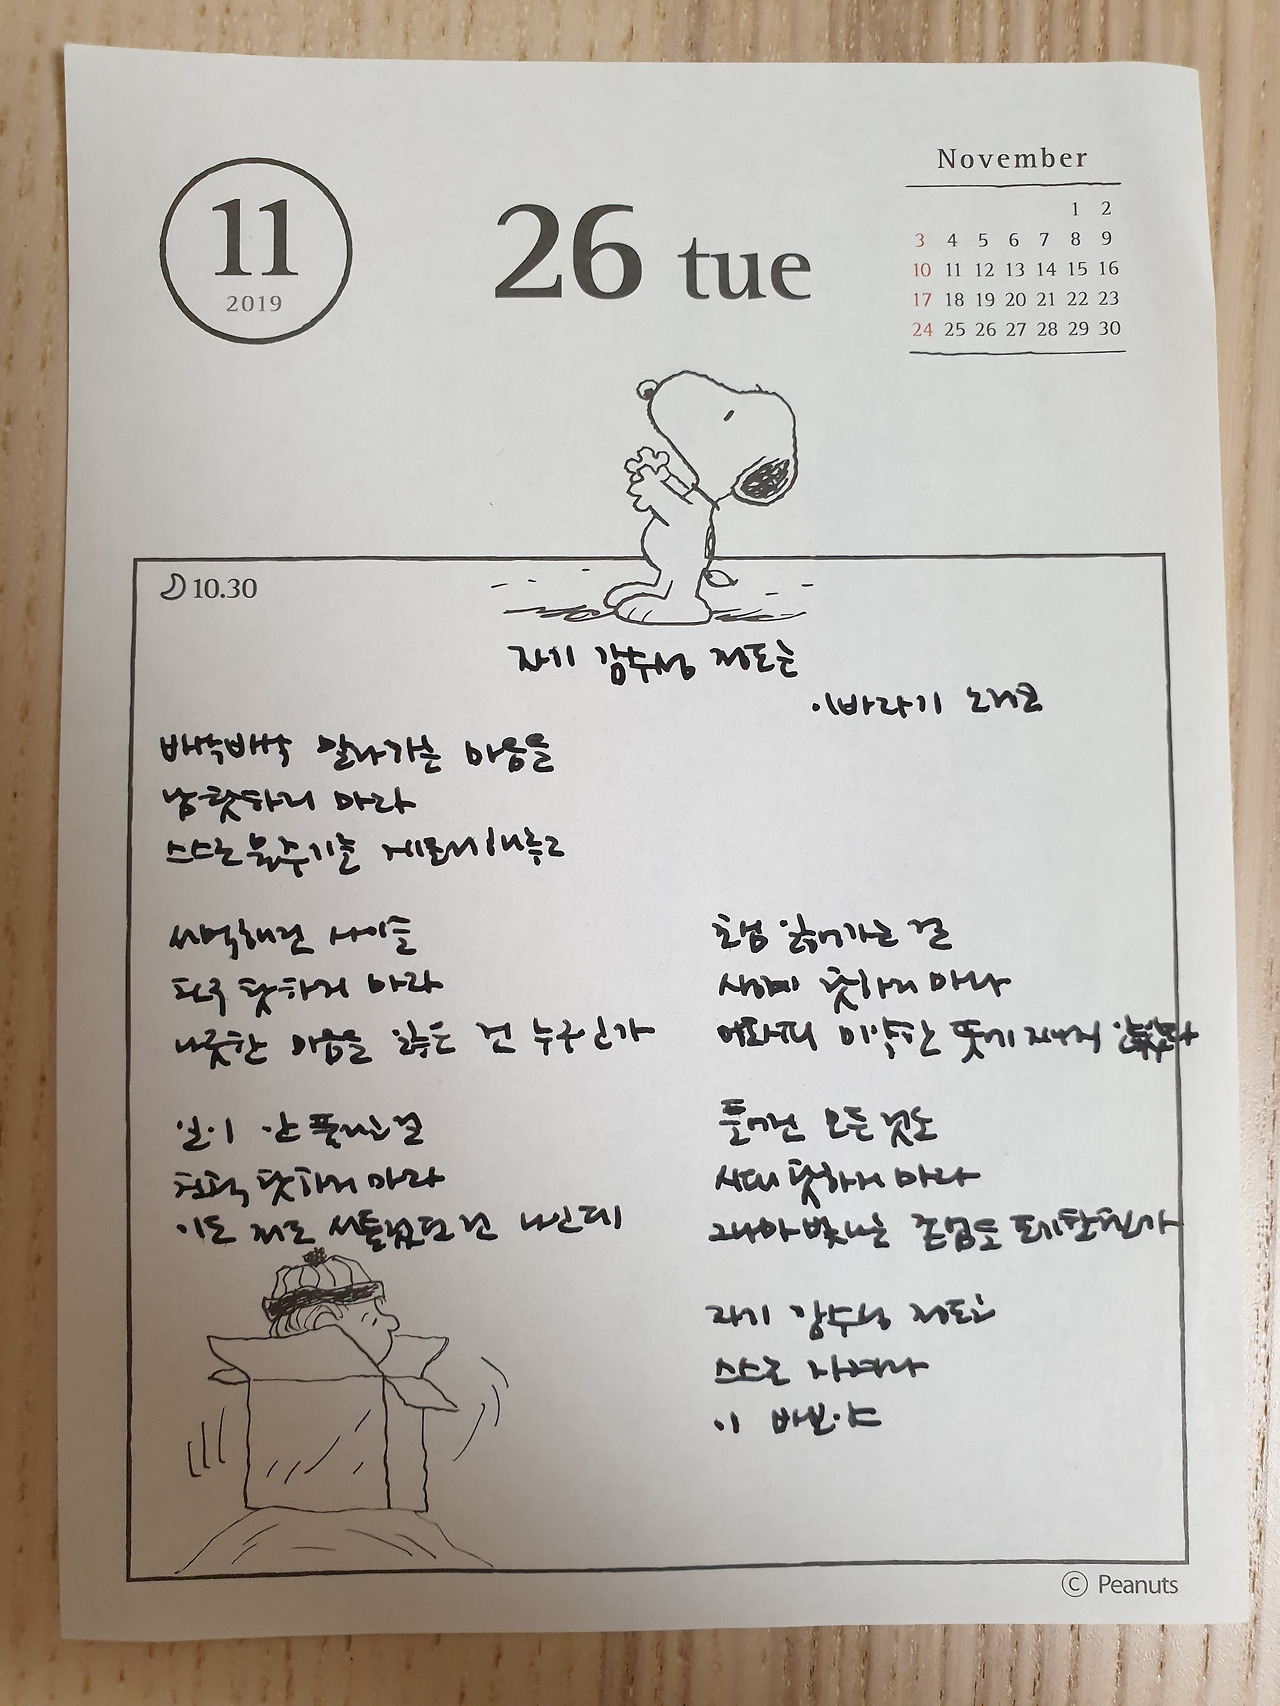 11
2019
26 tue
November
1 2
3 4 5 6 7 8 9
10 11 12 13 14 15 16
17 18 19 20 21 22 23
24 25 26 27 28 29 30
10.30
자기 감수성 정도는
이바라기 노리코
바싹바싹 말라가는 마음을
남 탓하지 마라
스스로 물주기를 게을리해놓고
서먹해진 사이를
친구 탓하지 마라
나긋한 마음을 잃은 건 누구인가
일이 안 풀리는 걸
친척 탓하지 마라
이도 저도 서툴렀던 건 나인데
초심 잃어가는 걸
생계 탓하지 마라
어차피 미약한 뜻에 지나지 않았다
틀어진 모든 것을
시대 탓하지 마라
그나마 빛나는 존엄을 포기할텐가
자기 감수성 정도는
스스로 지켜라
이 바보야
© Peanuts